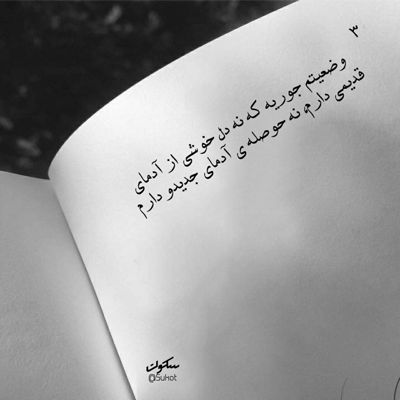 ۳
وضعیتم جوریه که نه دل خوشی از آدمای
قدیمی دارم، نه حوصله ی آدمای جدیدو دارم
سکوت
@Sukot